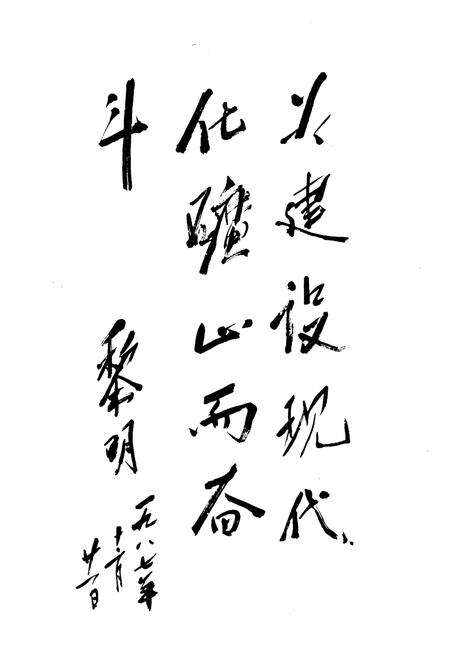 为建设现代
化礦山而奋
斗
黎明
一九八七年
廿一日